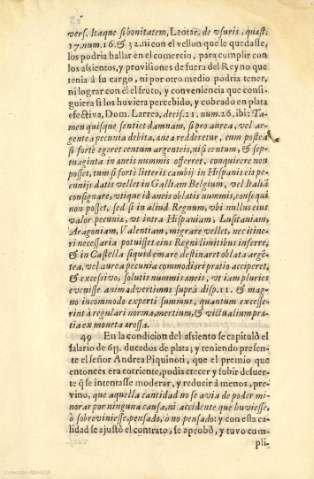 vers. Itaque si bonitatem, Leotar. de vsuris, quæst.
17. num. 16. & 32. ni con el vellon que le quedasse,
los podria hallar en el comercio, para cumplir con
los assientos, y provisiones de fuera del Reyno que
tenia à su cargo, ni por otro medio podria tener,
ni lograr con el efecto, y conveniencia que consi-
guiera si los huviera percebido, y cobrado en plata
efectiva, Dom. Larrea, decis. 21. num. 26. ibi: Ta-
men quisque sentiet damnum, si pro aurea, vel ar-
gentea pecunia debita, ærea redderetur, cum postea
si fortè egeret centum argenteis, nisi centum, & sep-
tuaginta in æneis nummis offerret, conquirere non
posset, tum si fortè litteris cambij in Hispanis cis pe-
cunijs datis vellet in Galliam Belgium, vel Italiã
consignare, vtique id æneis oblatis nummis, consequi
non posset, sed si in aliud Regnum, vbi nullus eius
valor pecuniæ, vt intra Hispaniam, Lusitaniam,
Aragoniam, Valentiam, migrare vellet, nec itine-
ri necessaria potuisset eius Regni limitibus inferre,
& in Castella siquid emare destinaret oblata argẽ-
tea, vel aurea pecunia commodiori pratio acciperet,
& excesivo, soluto nummis æneis, vt iam pluries
evenisse animadvertimus suprà disp. 11. & mag-
no incommodo experti sumus, quantum excesse-
rint à regulari norma, mertium, & victualium pra-
tia ex moneta grossa.
49 En la condicion del assiento se capitulò el
salario de 6y. ducados de plata; y teniendo presen-
te el señor Andrea Piquinoti, que el premio que
entonces era corriente, podia crecer y subir de suer-
te q̃ se intentasse moderar, y reducir à menos, pre-
vino, que aquella cantidad no se avia de poder mi-
norar por ninguna causa, ni accidente que huviesse,
ò sobreviniesse, pensado, ò no pensado: y con esta ca-
lidad se ajustò el contrato, se aprobò, y tuvo cum-
pli-